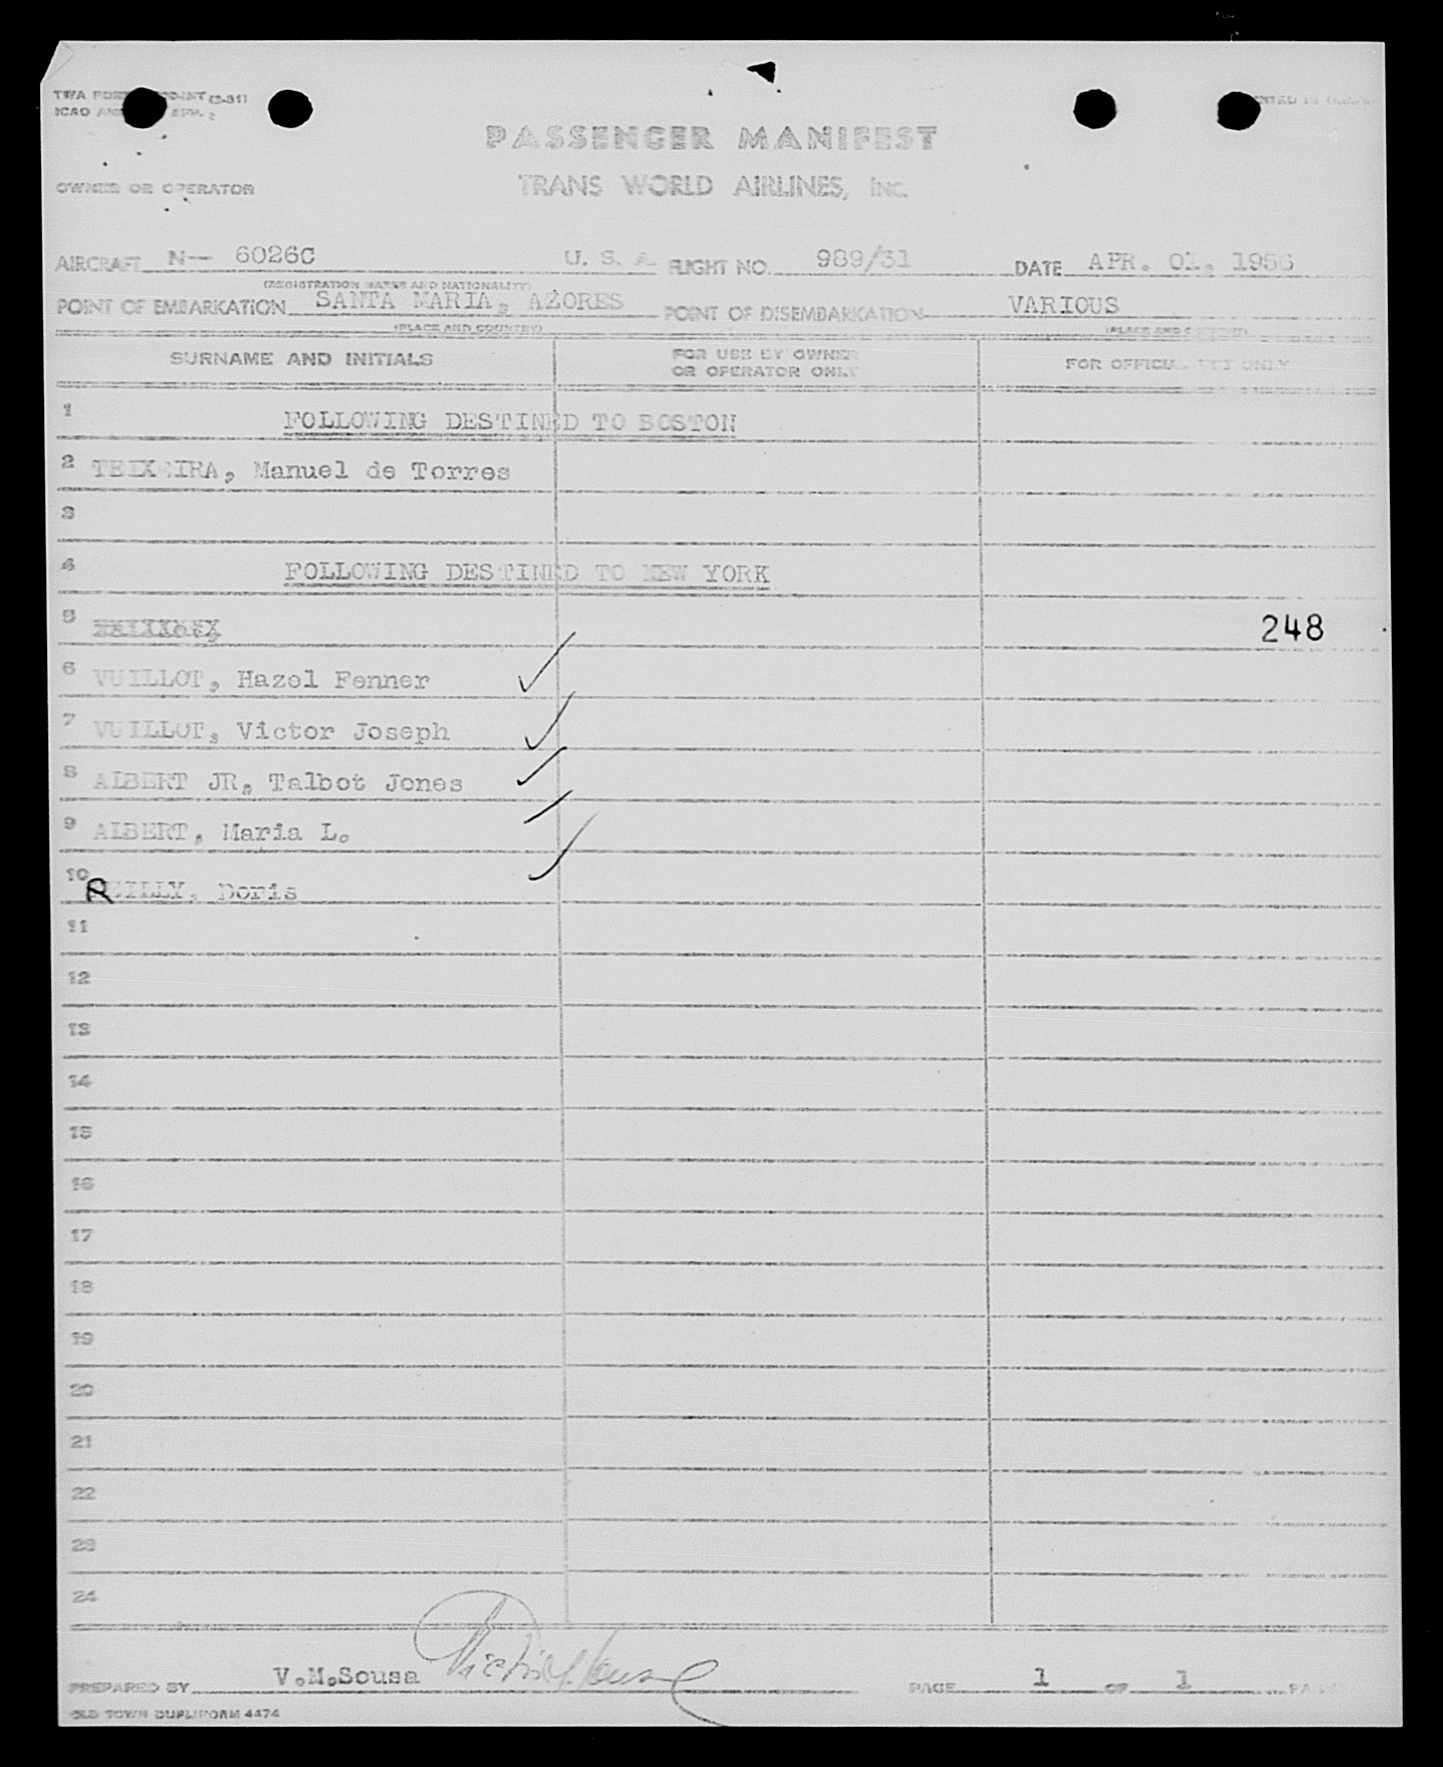 PASSENGER MANIFEST
OWNER OR OPERATOR TRANS WORLD AIRLINES, INC.
AIRCRAFT N-- 6026C U. S. A. FLIGHT NO. 989/31 DATE APR. 01, 1956
(REGISTRATION MARKS AND NATIONALITY)
POINT OF EMBARKATION SANTA MARIA, AZORES POINT OF DISEMBARKATION VARIOUS
(PLACE AND COUNTRY) (PLACE AND COUNTRY)
SURNAME AND INITIALS FOR USE BY OWNER OR OPERATOR ONLY FOR OFFICIAL USE ONLY
1 FOLLOWING DESTINED TO BOSTON
2 TEIXEIRA, Manuel de Torres
3
4 FOLLOWING DESTINED TO NEW YORK
5 248
6 VUILLOT, Hazel Fenner ✓
7 VUILLOT, Victor Joseph ✓
8 ALBERT JR, Talbot Jones ✓
9 ALBERT, Maria L.
10 REILLY, Doris ✓
11
12
13
14
15
16
17
18
19
20
21
22
23
24
PREPARED BY V.M.Sousa PAGE 1 OF 1
OLD TOWN DUPLIFORM 4474